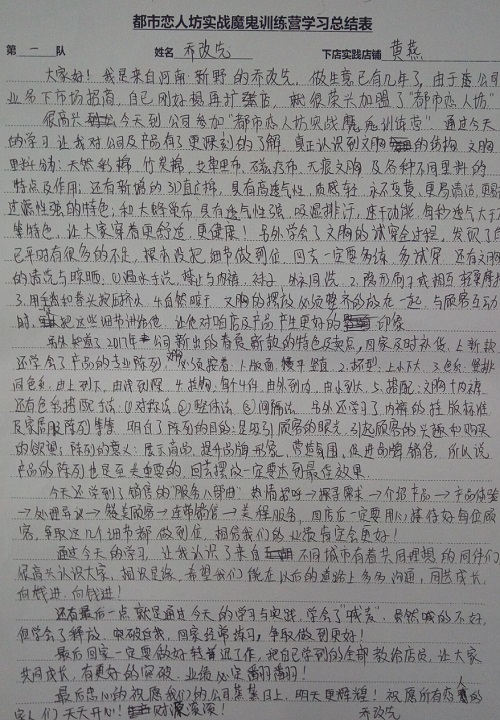 都市恋人坊实战魔鬼训练营学习总结表
第 一 队 姓名 乔改先 下店实践店铺 黄燕
大家好！我是来自河南·新野的乔改先，做生意已有几年了，由于贵公司
业务下市场招商，自己刚好想再扩张店，就很荣兴加盟了"都市恋人坊"
很高兴今天到公司参加"都市恋人坊实战魔鬼训练营"通过今天
的学习让我对公司及产品有了更深刻的了解，真正认识到文胸的结构，文胸
里料分为：天然彩棉，竹炭棉，艾草里布，磁疗布，无痕文胸及各种不同里料的
特点及作用；还有新增的3D直立棉，具有高透气性，质感轻，永不变黄，更易清洁，
过滤性强的特色；和大蜂巢布具有透气性强，吸湿排汗，速干功能，
等特色，让大家穿着更舒适，更健康！另外学会了文胸的试穿全过程，发现了自
己平时有很多的不足，根本没把细节做到位，回去一定要多练，多试穿，还有文胸
的清洗与晾晒：①温水手洗，禁止与内裤，袜子，外衣同洗，2.隐形刷子或相互轻轻摩擦
3.用手按和卷头挖后挤水 4.自然晾干，文胸的摆放必须整齐的放在一起，与顾客互动
时，把这些细节讲给他，让他对咱店及产品产生更好的印象
另外知道了2017年公司新出的春夏新款的特色及卖点，回家及时补货，上新款
还学会了产品的专业陈列，必须按着：1.版面，横平竖直，2.杯型：上小下大，3.色系：竖排
同色系，由上到下，由浅到深，4.挂钩，每个4件，由外到内，由小到大，5.搭配：文胸+内裤
还有色彩搭配手法：①对称法 ②整体法 ③间隔法，另外还学习了内裤的挂版标准
及家居服陈列等等，明白了陈列的目的：是吸引顾客的眼光，引起顾客的兴趣和购买
的欲望；陈列的意义：展示商品，提升品牌形象，营造氛围，促进品牌销售，所以说
产品的陈列也是至关重要的，回去摆放一定要达到最佳效果。
今天还学到了销售的"服务八部曲"热情招呼→探寻需求→介绍产品→产品体验
→处理异议→赞美顾客→连带销售→美程服务，回店后一定要用心接待好每位顾
客，争取这几个细节都做到位，相信我们的业绩肯定会更好！
通过今天的学习，让我认识了来自不同城市有着共同理想的同伴们
很高兴认识大家，相识是缘，希望我们能在以后的道路上多多沟通，同造成长，
向钱进，向钱进！
还有最后一点就是通过今天的学习与实践，学会了"喊麦"，虽然喊的不好，
但学会了释放，突破自我，回家经常练习，争取做到更好！
最后回家一定要做好转训工作，把自己学到的全部教给店员，让大家
共同成长，有更好的突破，业绩必定翻翻翻！
最后忠心的祝愿我们的公司蒸蒸日上，明天更辉煌！祝愿所有恋人的
家人们天天开心！财源滚滚！ 乔改先